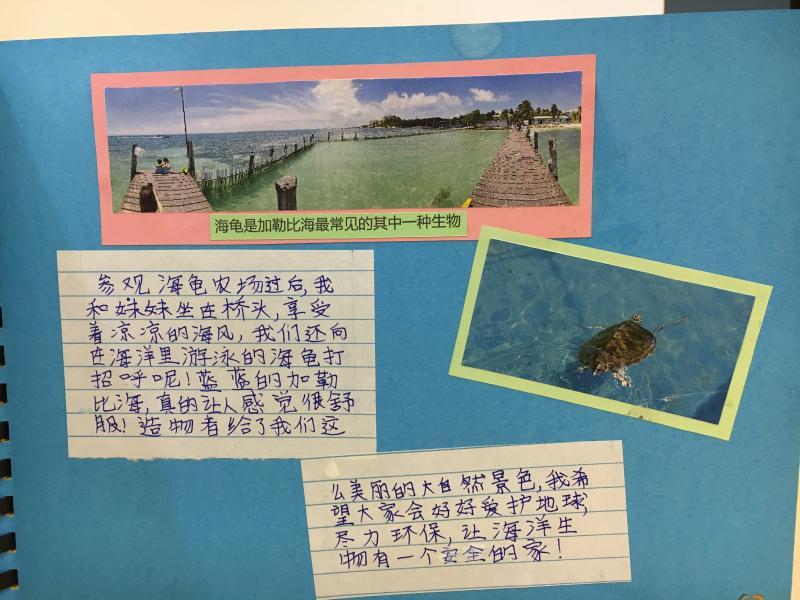 海龟是加勒比海最常见的其中一种生物
参观海龟农场过后,我
和妹妹坐在桥头,享受
着凉凉的海风,我们还向
在海洋里游泳的海龟打
招呼呢!蓝蓝的加勒
比海,真的让人感觉很舒
服!造物者给了我们这
么美丽的大自然景色,我希
望大家会好好爱护地球,
尽力环保,让海洋生
物有一个安全的家!